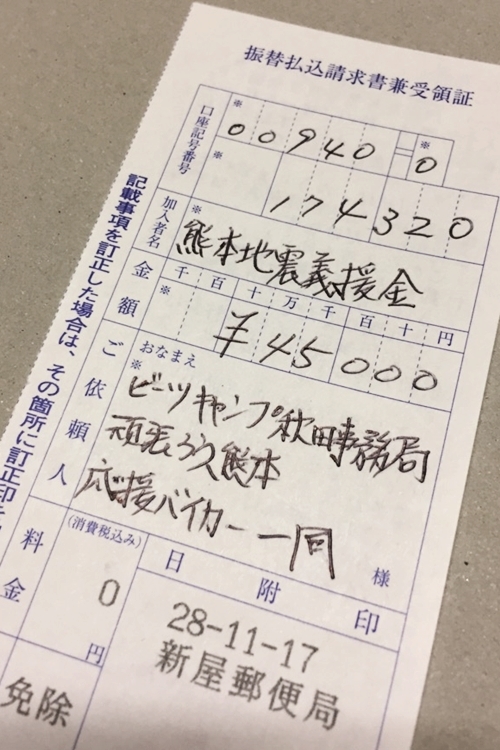 振替払込請求書兼受領証
口座記号番号
※ 00940 - ※ 0
※ 174320
加入者名
※ 熊本地震義援金
金額
千 百 十 万 千 百 十 円
※ ¥45000
ご依頼人
おなまえ
※ ビーツキャンプ秋田事務局
頑張ろう熊本
応援バイカー一同
様
料金
(消費税込み)
0
円
日附印
28-11-17
新屋郵便局
免除
記載事項を訂正した場合は、その箇所に訂正印を